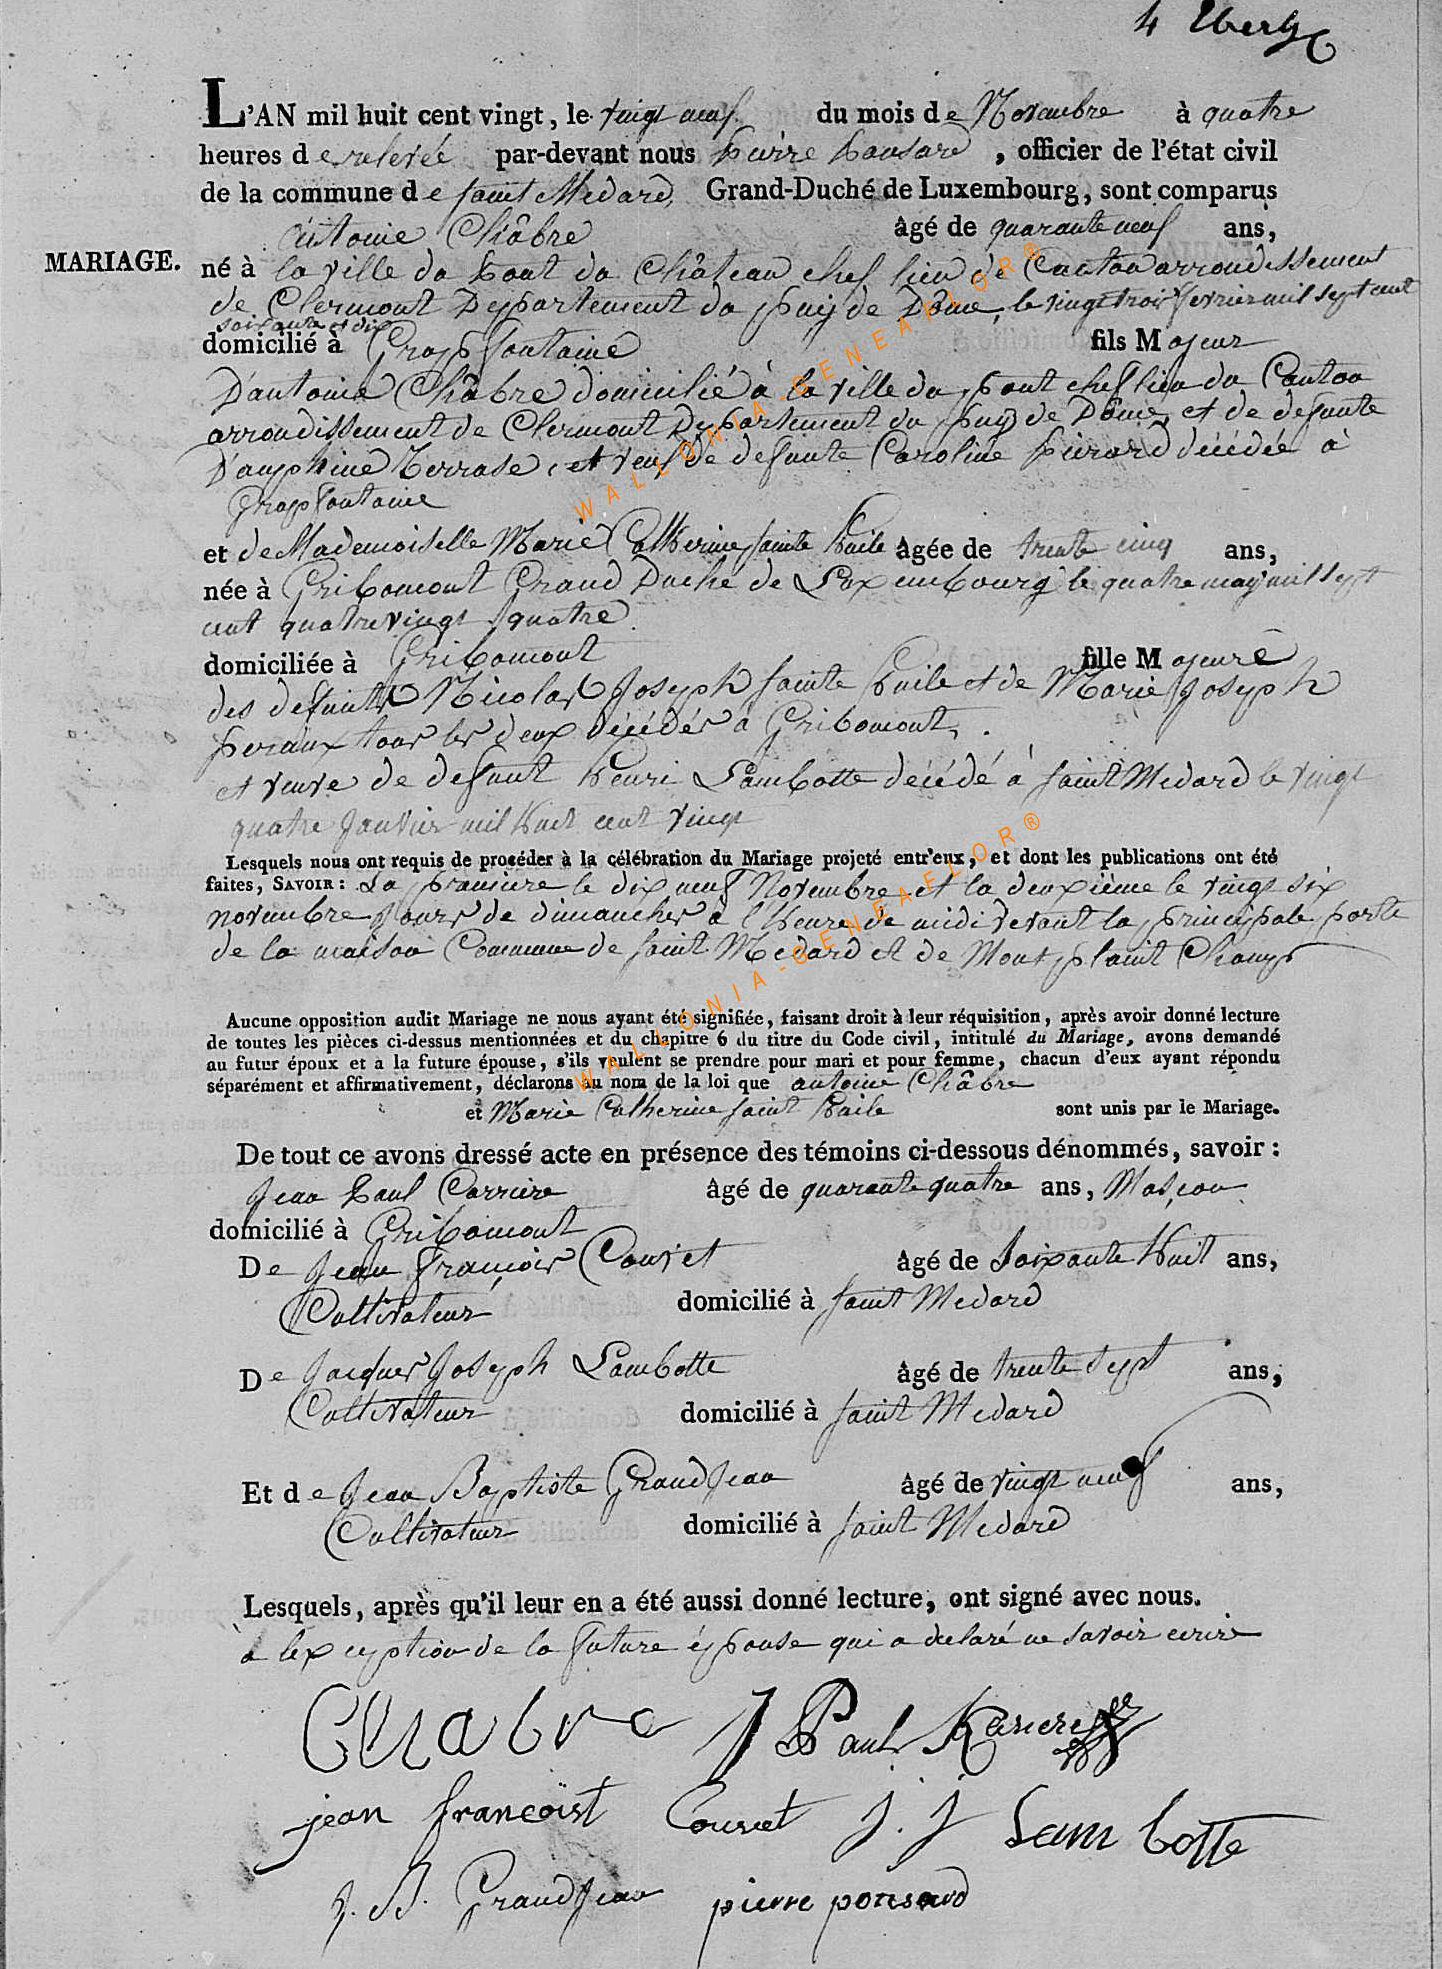 L'AN mil huit cent vingt, le vingt neuf du mois de Novembre à quatre
heures de relevée par-devant nous pierre ponsard, officier de l'état civil
de la commune de saint Medard, Grand-Duché de Luxembourg, sont comparus
antoine Châbre âgé de quarante neuf ans,
MARIAGE.
né à la ville du pont du Château chef lieu de Canton arrondissement
de Clermont Departement du puy de Dôme, le vingt trois fevrier mil sept cent
soixante et dix
domicilié à Grapfontaine fils Majeur
D'antoine Châbre domicilié à la ville du pont chef lieu du Canton
arrondissement de Clermont Departement du puy de Dôme, et de defunte
D'auphine Terrase, et veuf de defunte Caroline pierard décédée à
Grapfontaine
et de Mademoiselle Marie Catherine sainte huile âgée de trente cinq ans,
née à Gribomont Grand Duché de Luxembourg le quatre may mil sept
cent quatre vingt quatre
domiciliée à Gribomont fille Majeure
des defunts Nicolas Joseph sainte huile et de Marie Joseph
peraux tous les deux décédés à Gribomont,
et veuve de defunt henri Lambotte décédé à saint Medard le vingt
quatre Janvier mil huit cent vingt
Lesquels nous ont requis de procéder à la célébration du Mariage projeté entr'eux, et dont les publications ont été
faites, SAVOIR: La premiere le dix neuf Novembre et la deuxième le vingt six
novembre jours de dimanches à l'heure de midi devant la principale porte
de la maison Commune de saint Medard et de Montplaint Champs
Aucune opposition audit Mariage ne nous ayant été signifiée, faisant droit à leur réquisition, après avoir donné lecture
de toutes les pièces ci-dessus mentionnées et du chapitre 6 du titre du Code civil, intitulé du Mariage, avons demandé
au futur époux et à la future épouse, s'ils veulent se prendre pour mari et pour femme, chacun d'eux ayant répondu
séparément et affirmativement, déclarons au nom de la loi que antoine Châbre
et Marie Catherine saint huile sont unis par le Mariage.
De tout ce avons dressé acte en présence des témoins ci-dessous dénommés, savoir :
Jean paul Carriere âgé de quarante quatre ans, Maçon
domicilié à Gribomont
De Jean François Couvet âgé de Soixante huit ans,
Cultivateur domicilié à saint Medard
De Jacques Joseph Lambotte âgé de trente sept ans,
Cultivateur domicilié à saint Medard
Et de Jean Baptiste GrandJean âgé de vingt neuf ans,
Cultivateur domicilié à saint Medard
Lesquels, après qu'il leur en a été aussi donné lecture, ont signé avec nous.
à lexception de la future épouse qui a declaré ne savoir ecrire
Chabre J Paul Kariere
jean françoist Couvet J. J Lambotte
J. B. GrandJean pierre ponsard
WALLONIA-GENEAFLOR®
WALLONIA-GENEAFLOR®